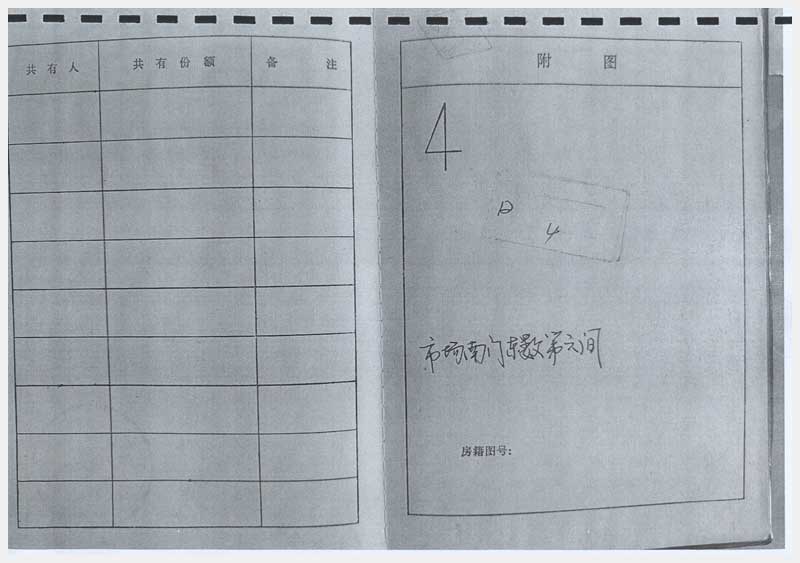 共有人 共有份额 备注
附图
4
4
市场南门东数第六间
房籍图号：